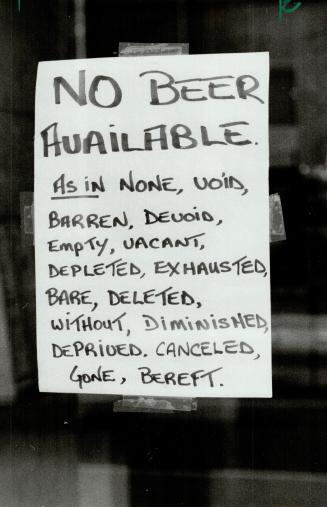 NO BEER
AVAILABLE.
AS IN NONE, VOID,
BARREN, DEVOID,
EMPTY, VACANT,
DEPLETED, EXHAUSTED,
BARE, DELETED,
WITHOUT, DIMINISHED,
DEPRIVED. CANCELED,
GONE, BEREFT.